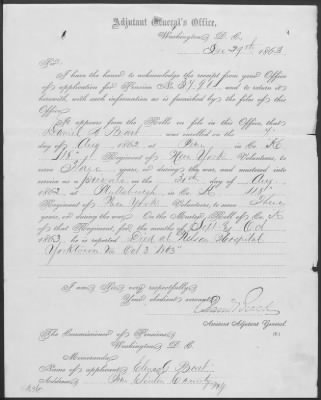 Adjutant General's Office,
Washington, D. C.
29th 1863
Sir:
I have the honor to acknowledge the receipt from your Office
of application for Pension No. and to return it
herewith, with such information as is furnished by the files of this
Office.
It appears from the Rolls on file in this Office, that
Daniel was enrolled on the
day of Aug 1862, at in Co. K
118" Regiment of New York Volunteers, to
serve Three years, or during the war, and mustered into
service as a on the day of Aug
1862, at Plattsburgh in Co. K 118"
Regiment of New York Volunteers, to serve Three
years, or during the war. On the Muster Roll of Co. K
of that Regiment, for the months of Sept & Oct
1863, he is reported Died at Hospital
Yorktown Va Oct 3 1863"
I am, Sir, very respectfully,
Your obedient servant,
Assistant Adjutant General.
The Commissioner of Pensions,
Washington, D. C.
Memoranda:
Name of applicant
Address Clinton County
NY